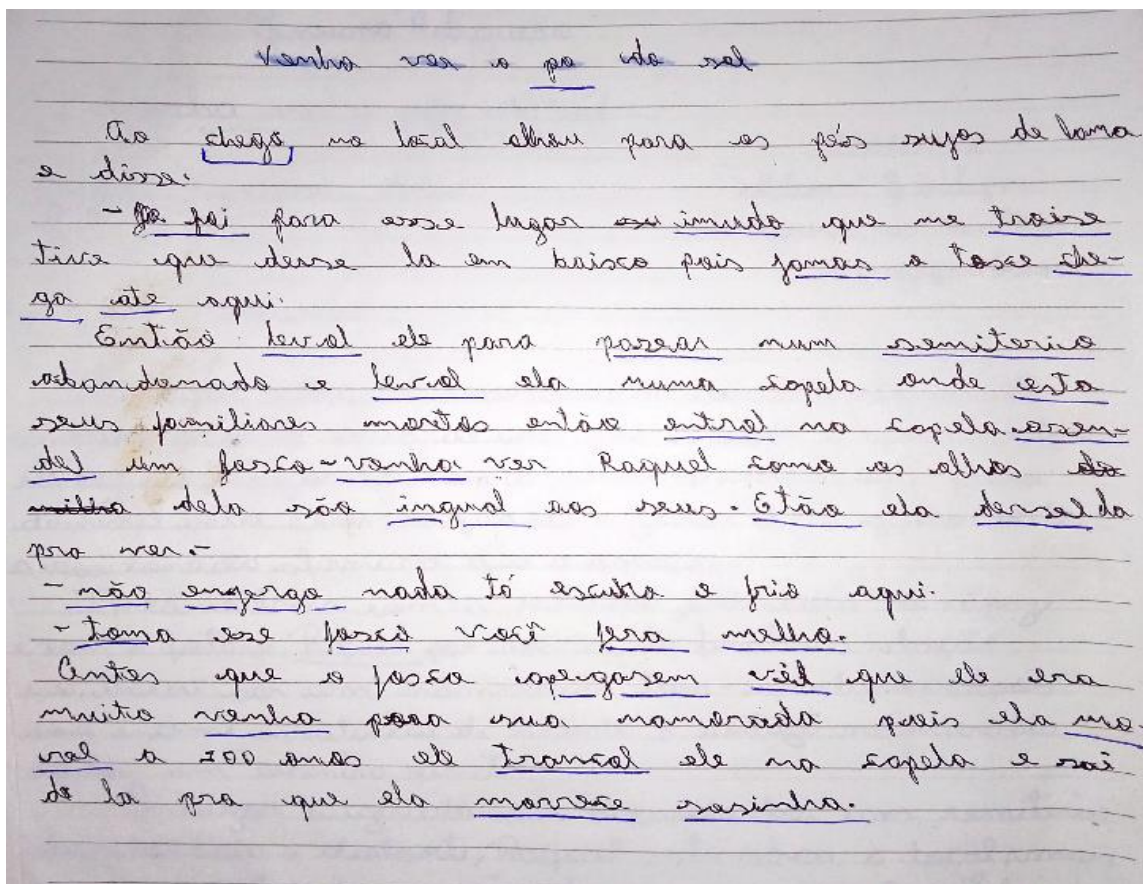 Venha ver o po do sol
Ao chega, no local olhou para os pés sujos de lama
e disse.
- foi para esse lugar imudo que me traise
tive que dense la em baixo pois jamas o taxe che-
ga ate aqui.
Entião leval ele para pasear num semiterio
abandonado e leval ela numa capela onde esta
seus familiares mortos então entral na capela.asen-
del um fosco-venha ver Raquel como os olhos
dela são ingual aos seus. Etão ela densel da
pra ver.-
- não engergo nada tó escuro e frio aqui.
- toma ese fosco você fera melho.
Antes que o fosco apegasem vil que ele era
muito venho para sua namorada pois ela mo-
ral a 100 anos ele trancol ele na capela e sai
de la pra que ela morrece sosinha.